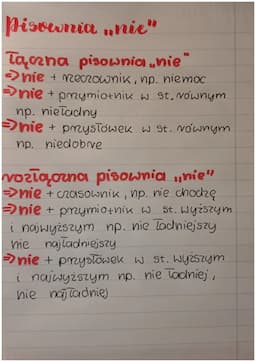 Pisownia „nie"
Łączna pisownia „nie"
⇒nie + rzeczownik, np. niemoc
⇒nie + przymiotnik w st. równym
np. nieładny
⇒nie + przysłówek w st. równym
np. niedobrze
rozłączna pisownia „nie"
⇒nie + czasownik, np. nie chodzę
⇒nie + przymiotnik w st. wyższym
i najwyższym np. nie ładniejszy
nie najładniejszy
⇒nie + przysłówek w st. wyższym
i najwyższym np. nie ładniej,
nie najładniej